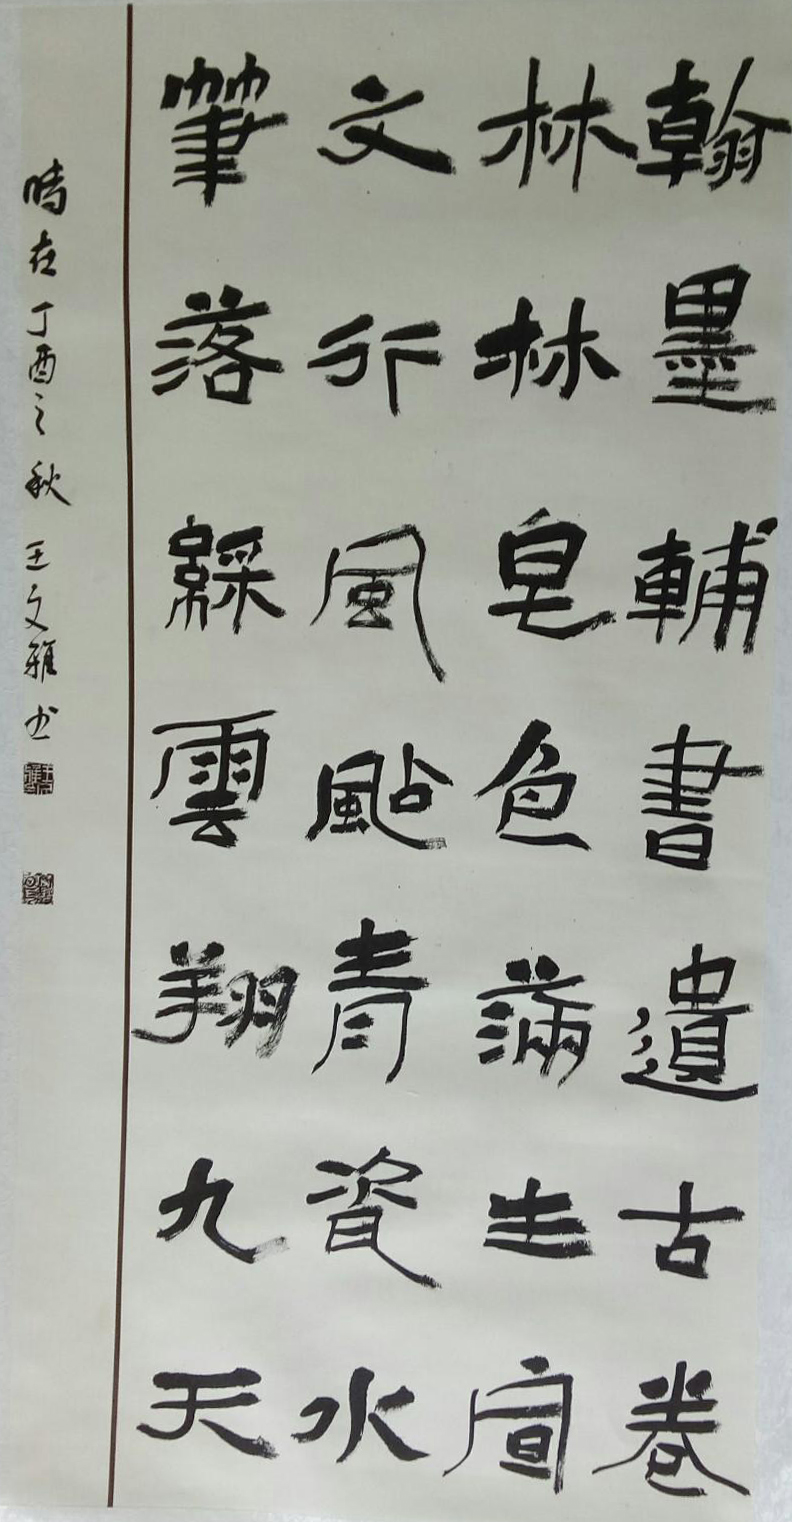 翰墨輔書遺古卷
林林皂色滿生宣
文行風颭青瓷水
筆落綵雲翔九天
時在丁酉之秋王文雅书